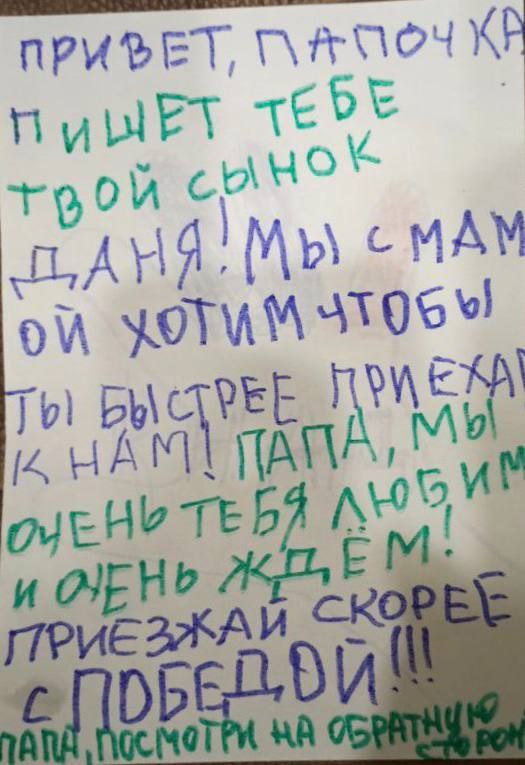 ПРИВЕТ, ПАПОЧКА
ПИШЕТ ТЕБЕ
ТВОЙ СЫНОК
ДАНЯ! МЫ С МАМ
ОЙ ХОТИМ ЧТОБЫ
ТЫ БЫСТРЕЕ ПРИЕХАЛ
К НАМ! ПАПА, МЫ
ОЧЕНЬ ТЕБЯ ЛЮБИМ
И ОЧЕНЬ ЖДЁМ!
ПРИЕЗЖАЙ СКОРЕЕ
С ПОБЕДОЙ!!!
ПАПА, ПОСМОТРИ НА ОБРАТНУЮ
СТОРОН